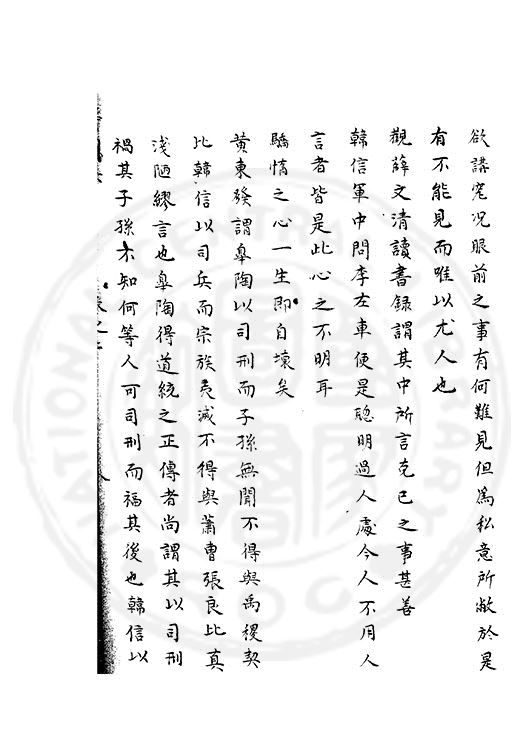 欲講冤况眼前之事有何難見但爲私意所蔽於是
有不能見而唯以尤人也
觀薛文清讀書録謂其中所言克己之事甚善
韓信軍中問李左車便是聰明過人處今人不用人
言者皆是此心之不明耳
驕惰之心一生即自壞矣
黄東發謂臯陶以司刑而子孫無聞不得與禹稷契
比韓信以司兵而宗族夷滅不得與蕭曹張良比真
淺陋繆言也臯陶得道統之正傳者尚謂其以司刑
禍其子孫不知何等人可司刑而福其後也韓信以